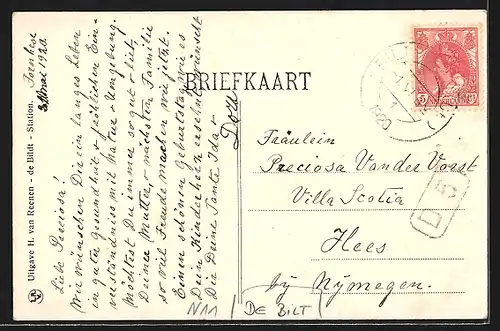 Uitgave H. van Reenen - de Bildt - Station.
31 Mai 1920
Liebe Preciosa!
Wir wünschen Dir ein langes Leben
in guter Gesundheit & fröhlichen Ein-
verständniss mit Natur & Umgebung.
Möchtest Du immer so gut & lieb,
Deiner Mutter & nächsten Familie
so viel Freude machen wie jetzt.
Einen schönen Geburtstag wie es
Dein Kinderherz ersehnt wünscht
Dir Deine Tante Ida &
Dolf
BRIEFKAART
Fräulein
Preciosa Van der Vorst
Villa Scotia
Hees
by Nymegen.
5
1920
D 5
N11
DE BILT